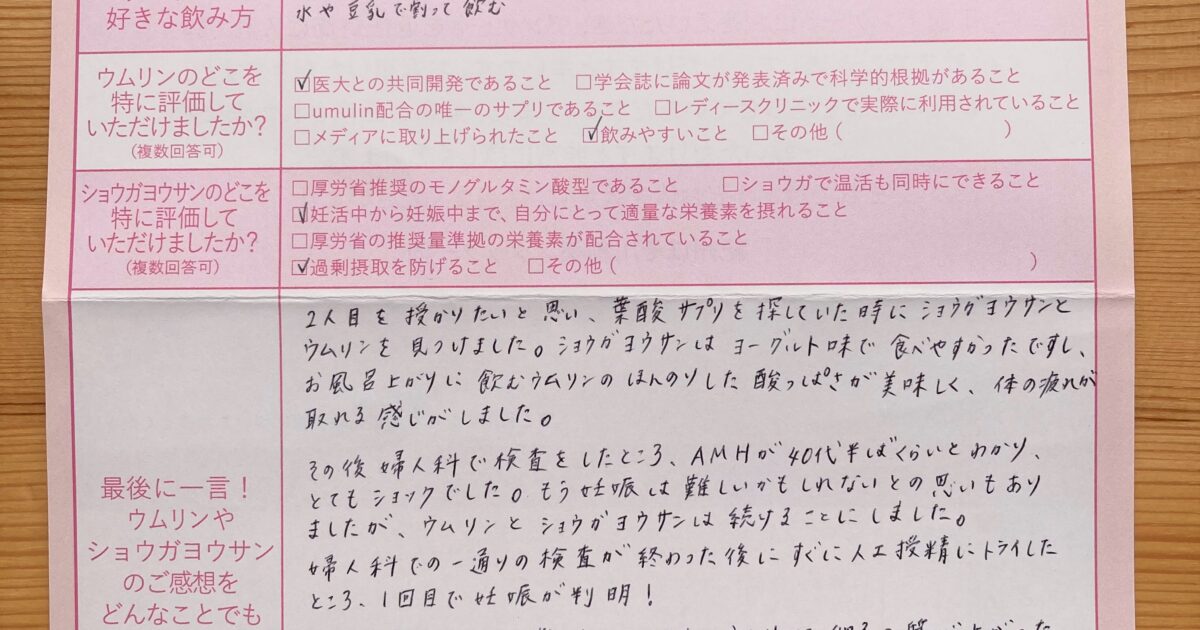 好きな飲み方
水や豆乳で割って飲む
ウムリンのどこを
特に評価して
いただけましたか?
(複数回答可)
☑医大との共同開発であること □学会誌に論文が発表済みで科学的根拠があること
□umulin配合の唯一のサプリであること □レディースクリニックで実際に利用されていること
□メディアに取り上げられたこと ☑飲みやすいこと □その他 ( )
ショウガヨウサンのどこを
特に評価して
いただけましたか?
(複数回答可)
□厚労省推奨のモノグルタミン酸型であること □ショウガで温活も同時にできること
☑妊活中から妊娠中まで、自分にとって適量な栄養素を摂れること
□厚労省の推奨量準拠の栄養素が配合されていること
☑過剰摂取を防げること □その他 ( )
最後に一言!
ウムリンや
ショウガヨウサン
のご感想を
どんなことでも
2人目を授かりたいと思い、葉酸サプリを探していた時にショウガヨウサンと
ウムリンを見つけました。ショウガヨウサンはヨーグルト味で食べやすかったですし、
お風呂上がりに飲むウムリンのほんのりした酸っぱさが美味しく、体の疲れが
取れる感じがしました。
その後婦人科で検査をしたところ、AMHが40代半ばくらいとわかり、
とてもショックでした。もう妊娠は難しいかもしれないとの思いもあり
ましたが、ウムリンとショウガヨウサンは続けることにしました。
婦人科での一通りの検査が終わった後にすぐに人工授精にトライした
ところ、1回目で妊娠が判明!